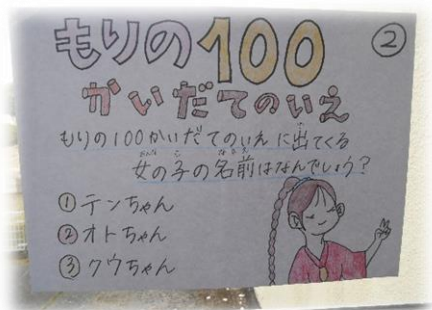 もりの100 ②
かいだてのいえ
もりの100かいだてのいえに出てくる
女の子の名前はなんでしょう?
①テンちゃん
②オトちゃん
③クウちゃん